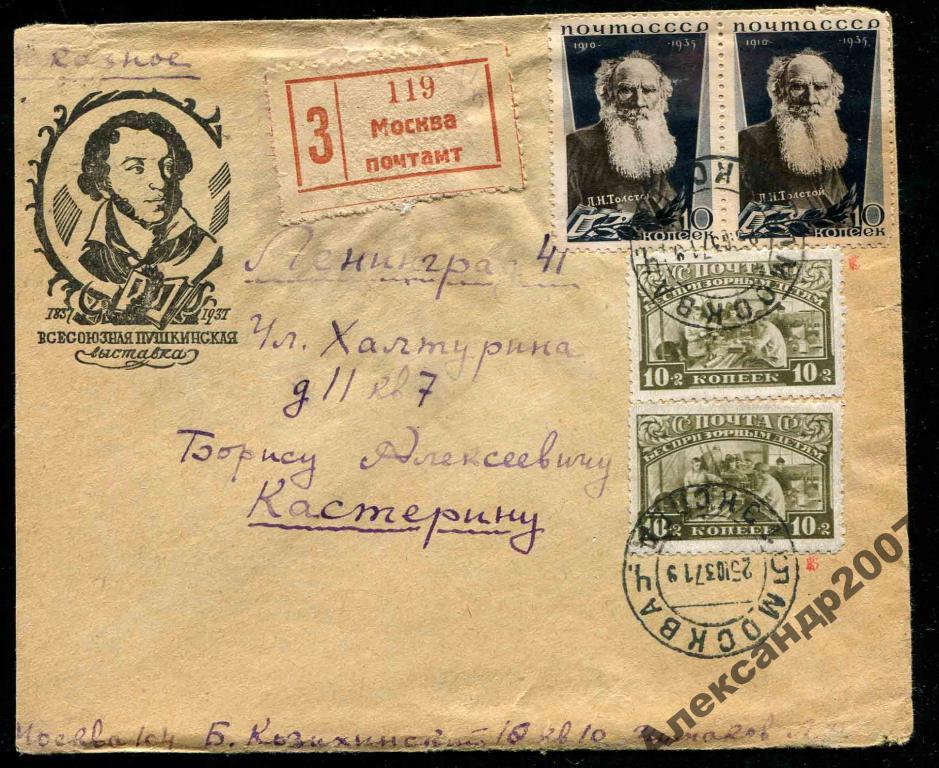 казное
119
З Москва
почтамт
ПОЧТА СССР
1910 - 1935
Л.Н.Толстой
10 КОПЕЕК
ПОЧТА СССР
1910 - 1935
Л.Н.Толстой
10 КОПЕЕК
1837 1937
ВСЕСОЮЗНАЯ ПУШКИНСКАЯ
выставка
Ленинград 41
Ул. Халтурина
д 11 кв 7
Борису Алексеевичу
Кастерину
ПОЧТА
БЕСПРИЗОРНЫМ ДЕТЯМ
10+2 КОПЕЕК 10+2
ПОЧТА
БЕСПРИЗОРНЫМ ДЕТЯМ
10+2 КОПЕЕК 10+2
МОСКВА
25 10 37 19
МОСКВА
Москва 104 Б. Козихинский кв 10
Александр2007